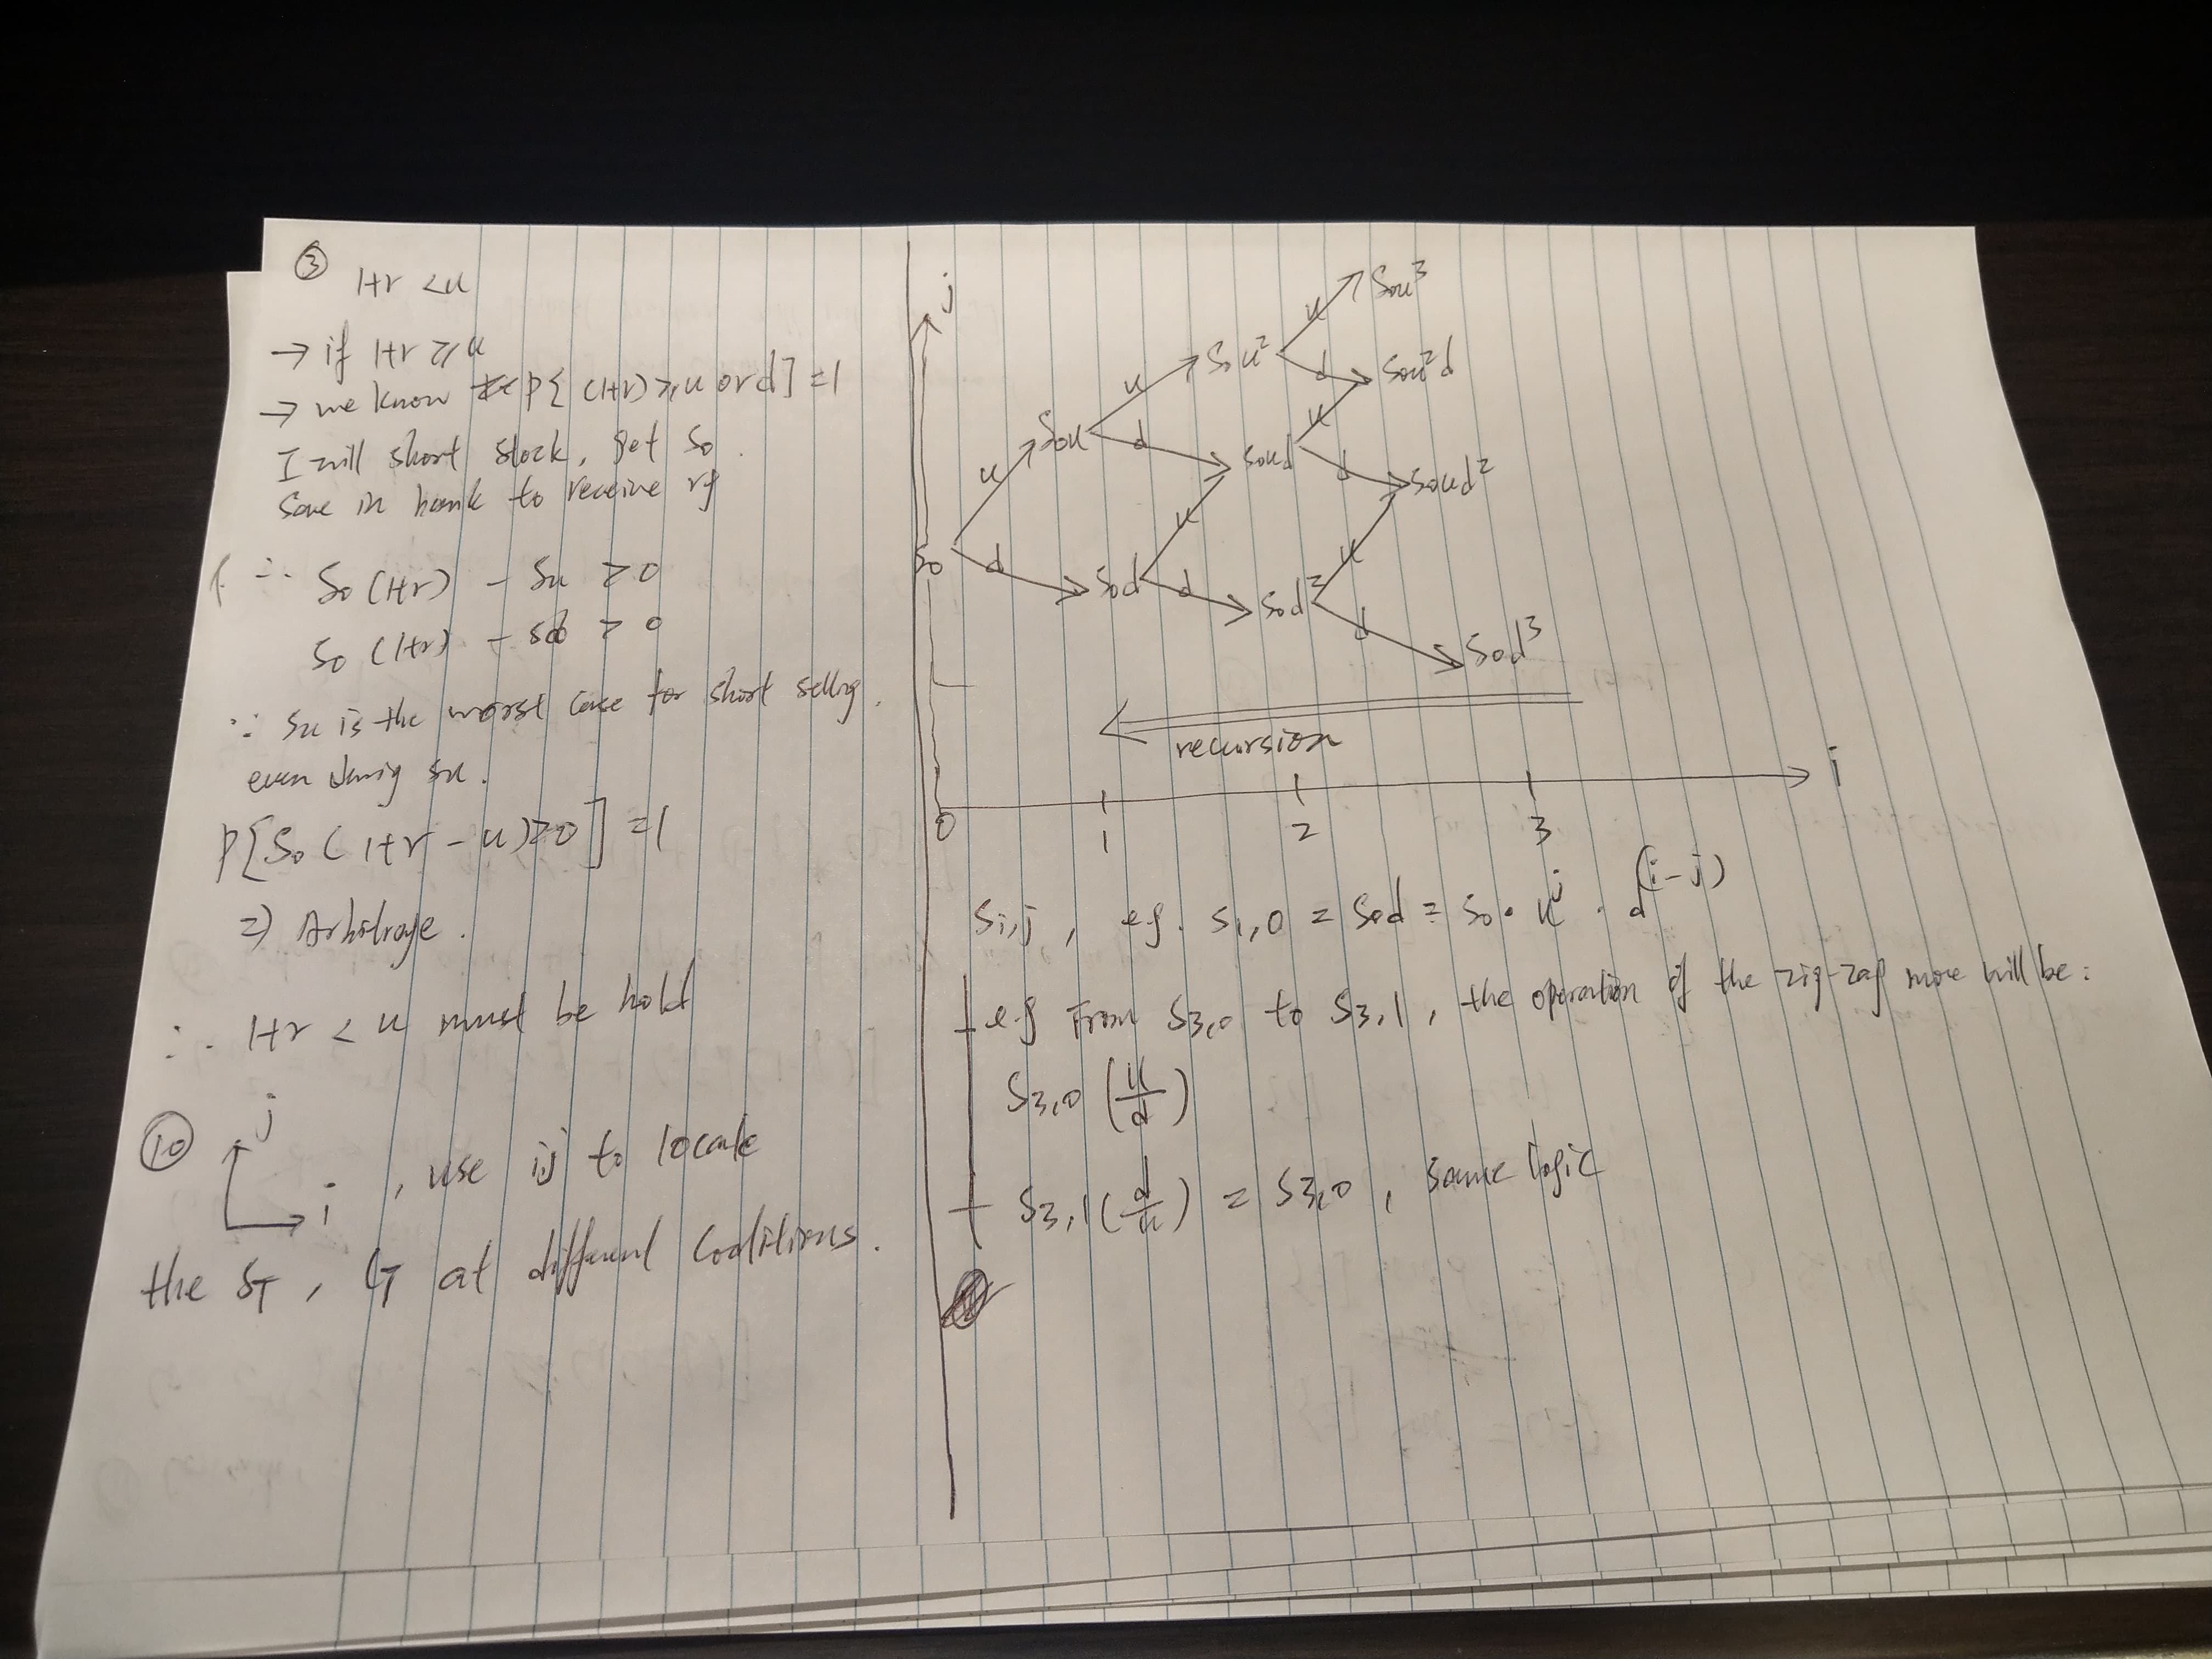 ③ 1+r < u
→ if 1+r ≥ u
→ we know P{ (1+r) ≥ u or d } = 1
I will short stock, get S₀.
Save in bank to receive rf
∴ S₀(1+r) - Su ≥ 0
S₀(1+r) - Sd > 0
∵ Su is the worst case for short selling.
even Su.
P[S₀(1+r - u) ≥ 0] = 1
⇒ Arbitrage.
∴ 1+r < u must be hold
⑩ j
i , use ij to locate
the ST, CT at different Coditions.
j
S₀u³
S₀u² u d S₀u²d
S₀u u d S₀ud u d S₀ud²
S₀ u d S₀d u d S₀d² u d S₀d³
recursion
i
0 1 2 3
Si,j , e.g. S1,0 = S₀d = S₀ · u^j · d^(i-j)
e.g From S3,0 to S3,1 , the operation of the zig-zag move will be :
S3,0 (u/d)
S3,1 (d/u) = S3,0 , same logic